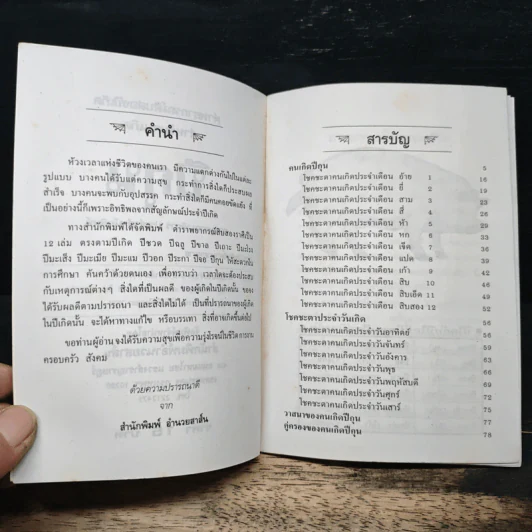 คำนำ
ห้วงเวลาแห่งชีวิตของคนเรา มีความแตกต่างกันไปในแต่ละ
รูปแบบ บางคนได้รับแต่ความสุข กระทำการสิ่งใดก็ประสบผล
สำเร็จ บางคนจะพบกับอุปสรรค กระทำสิ่งใดก็มีคนคอยขัดแย้ง ที่
เป็นอย่างนี้ก็เพราะอิทธิพลจากสัญลักษณ์ประจำปีเกิด
ทางสำนักพิมพ์ได้จัดพิมพ์ ตำราพยากรณ์สิบสองราศีเป็น
12 เล่ม ตรงตามปีเกิด ปีชวด ปีฉลู ปีขาล ปีเถาะ ปีมะโรง
ปีมะเส็ง ปีมะเมีย ปีมะแม ปีวอก ปีระกา ปีจอ ปีกุน ให้สะดวกใน
การศึกษา ค้นคว้าด้วยตนเอง เพื่อทราบว่า เวลาใดจะต้องประสบ
กับเหตุการณ์ต่างๆ สิ่งใดเป็นผลดี ของผู้เกิดในปีเกิดนั้น ของ
ได้รับผลดีตามปรารถนา และสิ่งใดไม่ได้ เป็นที่ปรารถนาของผู้เกิด
ในปีเกิดนั้น จะได้หาทางแก้ไข หรือบรรเทา สิ่งที่อาจเกิดขึ้นต่อไป
ขอท่านผู้อ่าน จงได้รับความสุขเพื่อความรุ่งโรจน์ในชีวิต การงาน
ครอบครัว สังคม
ด้วยความปรารถนาดี
จาก
สำนักพิมพ์ อำนวยสาส์น
สารบัญ
คนเกิดปีกุน 5
โชคชะตาคนเกิดประจำเดือน อ้าย 1 16
โชคชะตาคนเกิดประจำเดือน ยี่ 2 19
โชคชะตาคนเกิดประจำเดือน สาม 3
โชคชะตาคนเกิดประจำเดือน สี่ 4
โชคชะตาคนเกิดประจำเดือน ห้า 5
โชคชะตาคนเกิดประจำเดือน หก 6
โชคชะตาคนเกิดประจำเดือน เจ็ด 7
โชคชะตาคนเกิดประจำเดือน แปด 8
โชคชะตาคนเกิดประจำเดือน เก้า 9 42
โชคชะตาคนเกิดประจำเดือน สิบ 10
โชคชะตาคนเกิดประจำเดือน สิบเอ็ด 11
โชคชะตาคนเกิดประจำเดือน สิบสอง 12 52
โชคชะตาประจำวันเกิด 56
โชคชะตาคนเกิดประจำวันอาทิตย์ 56
โชคชะตาคนเกิดประจำวันจันทร์
โชคชะตาคนเกิดประจำวันอังคาร
โชคชะตาคนเกิดประจำวันพุธ
โชคชะตาคนเกิดประจำวันพฤหัสบดี
โชคชะตาคนเกิดประจำวันศุกร์
โชคชะตาคนเกิดประจำวันเสาร์
วาสนาของคนเกิดปีกุน 77
คู่ครองของคนเกิดปีกุน 78